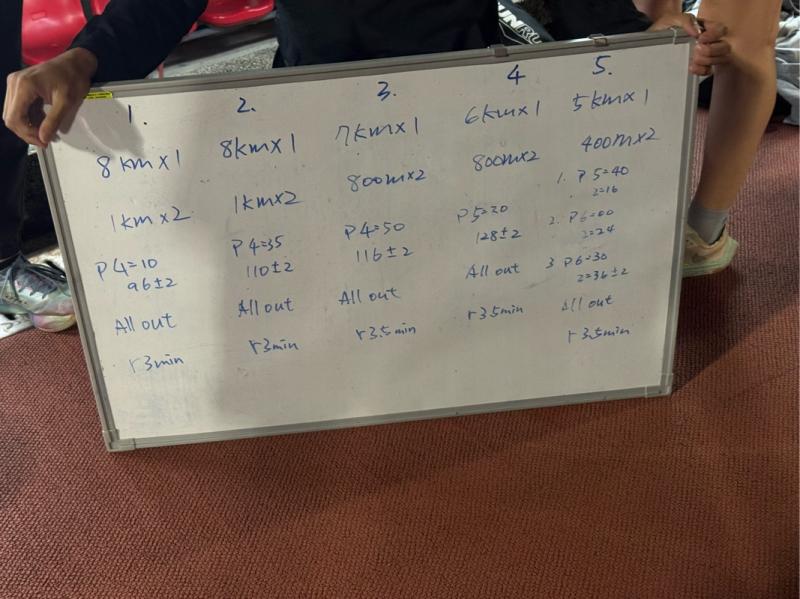 1.
8kmx1
1kmx2
P4=10
96±2
All out
r3min
2.
8kmx1
1kmx2
P4=35
110±2
All out
r3min
3.
7kmx1
800mx2
P4=50
116±2
All out
r3.5min
4
6kmx1
800mx2
P5=20
128±2
All out
r3.5min
5.
5kmx1
400mx2
1. P5=40
2=16
2. P6=00
2=24
3 P6=30
2=36±2
All out
r3.5min